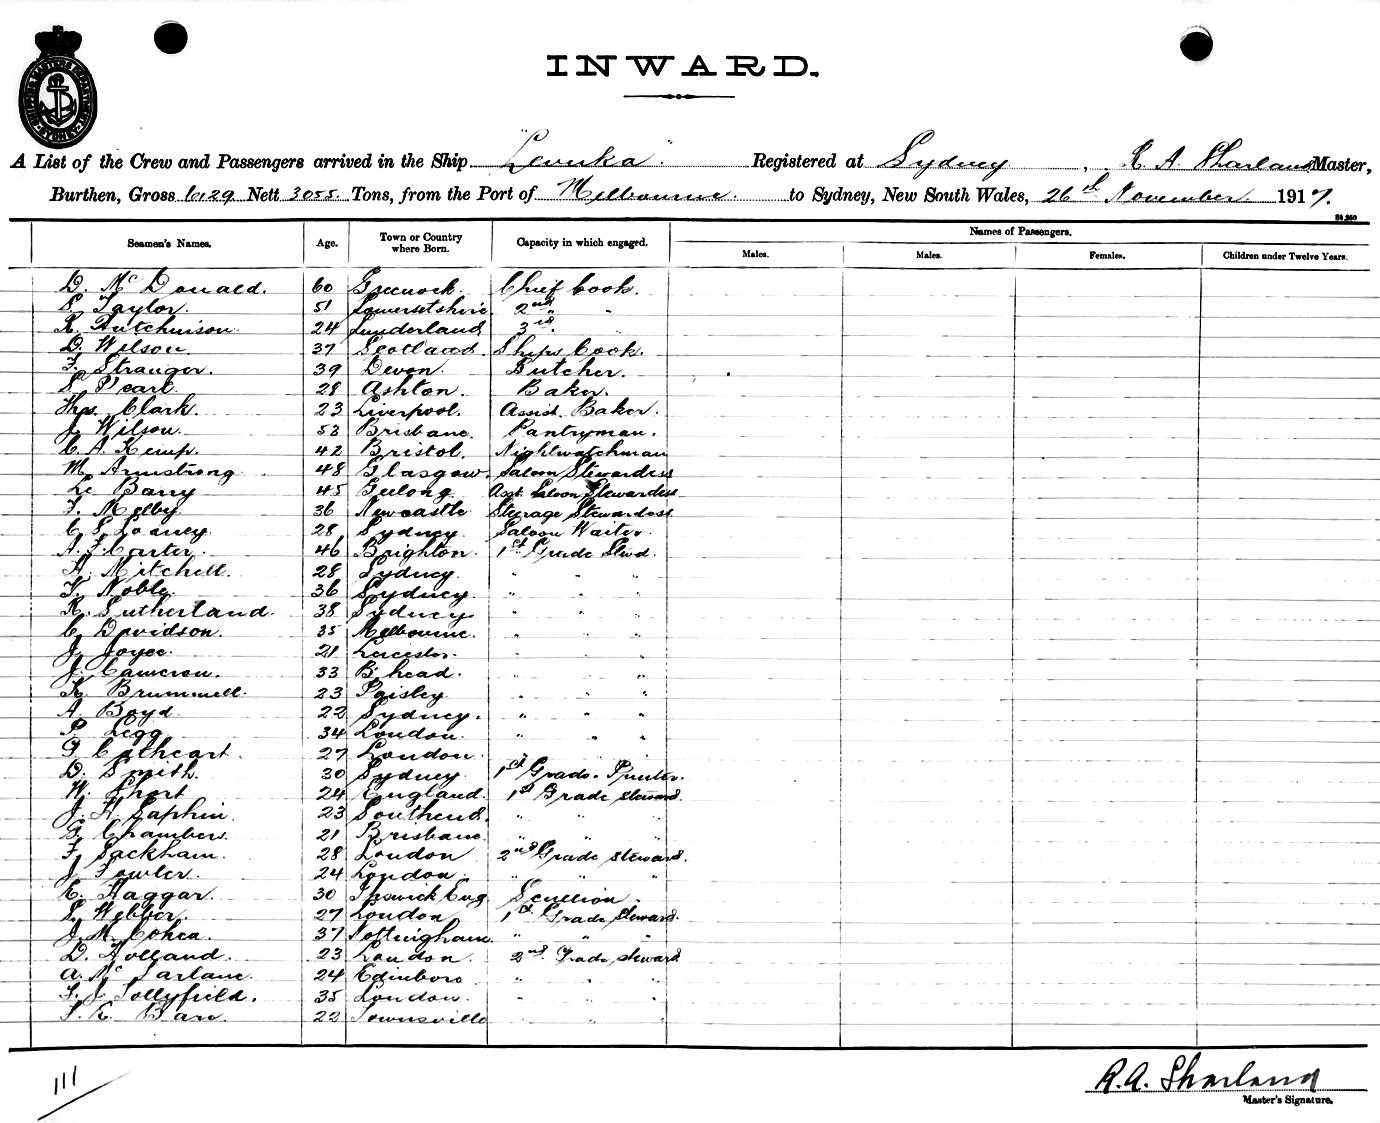 SHIPPING MASTERS DEPARTMENT SYDNEY
INWARD.
A List of the Crew and Passengers arrived in the Ship "Levuka" Registered at Sydney, R. A. Sharland Master,
Burthen, Gross 6129 Nett 3055 Tons, from the Port of Melbourne. to Sydney, New South Wales, 26th November 1917.
Seamen's Names. Age. Town or Country where Born. Capacity in which engaged. Names of Passengers.
Males. Males. Females. Children under Twelve Years.
D. McDonald. 60 Greenock Chief Cook.
S. Taylor. 51 Somersetshire. 2nd "
R. Hutchinson. 24 Sunderland 3rd. "
D. Wilson. 37 Scotland. Ships Cook.
F. Stranger. 39 Devon. Butcher.
S. Pearl. 28 Ashton. Baker.
Thos. Clark. 23 Liverpool. Assist. Baker.
J. Wilson. 53 Brisbane. Pantryman.
C. A. Kemp. 42 Bristol. Nightwatchman
M. Armstrong 48 Glasgow. Saloon Stewardess
Le Barry 45 Geelong Asst. Saloon Stewardess
F. Melby 36 Newcastle Steerage Stewardess
C. S. Looney. 28 Sydney. Saloon Waiter.
A. F. Carter. 46 Brighton. 1st Grade Stwd.
H. Mitchell. 28 Sydney. " " "
F. Noble. 36 Sydney. " " "
R. Sutherland. 38 Sydney " " "
C. Davidson. 35 Melbourne. " " "
J. Joyce. 21 Leicester. " " "
J. Cameron. 33 B'head. " " "
H. Brummell. 23 Paisley " " "
A. Boyd. 22 Sydney. " " "
P. Legg 34 London. " " "
G. Cathcart. 27 London. " " "
D. Smith. 30 Sydney. 1st Grade.
W. Short 24 England. 1st Grade steward.
J. H. Saphin. 23 Southend. " " "
G. Chambers. 21 Brisbane. " " "
F. Sackham. 28 London 2nd Grade steward.
J. Fowler. 24 London. " " "
E. Haggar. 30 Ipswick Eng Scullion.
S. Webber. 27 London 1st Grade steward.
J. M. Cohen. 37 Nottingham. " " "
D. Holland. 23 London. 2nd Grade steward
A. McFarlane. 24 Edinboro " " "
F. J. Tollyfield. 35 London. " " "
S. E. Bare. 22 Townsville " " "
111
R. A. Sharland
Master's Signature.